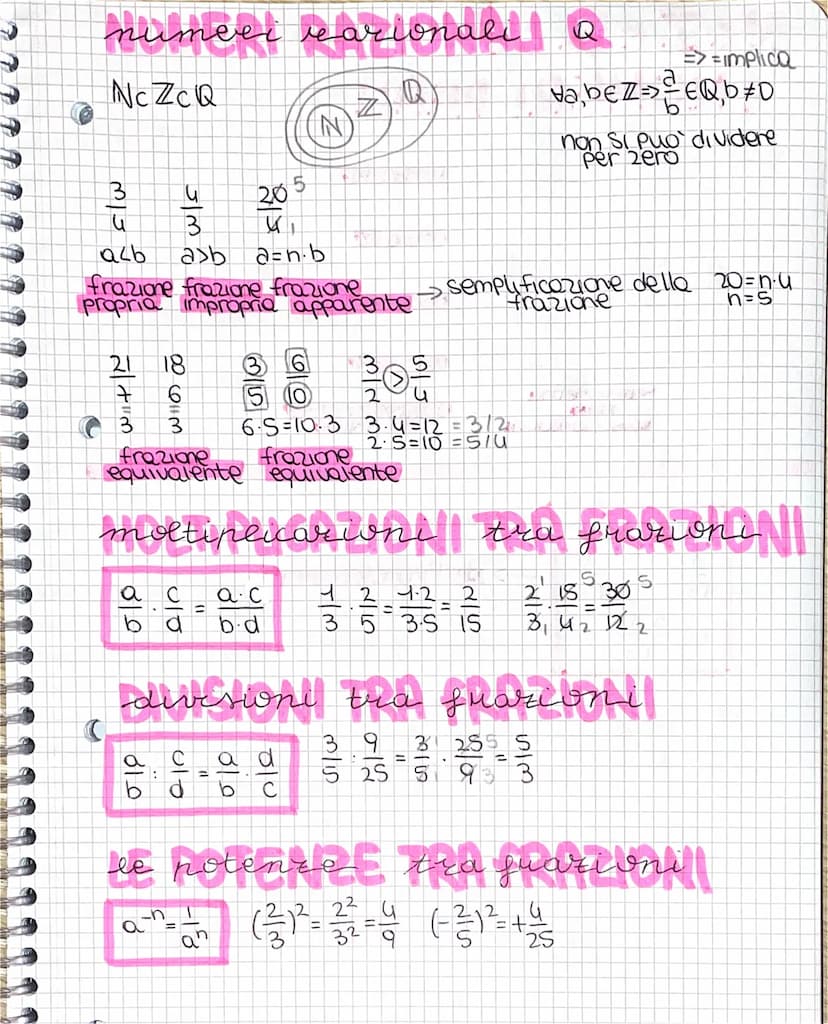 numeri razionali Q
=> = implica
ℕ ⊂ ℤ ⊂ ℚ
ℕ ℤ ℚ
∀a,b∈ℤ ⇒ a/b ∈ℚ, b≠0
non si può dividere
per zero
3/4 4/3 20/4 5 1
a<b a>b a=n·b
frazione propria frazione impropria frazione apparente → semplificazione della frazione 20=n·4
n=5
21/7 18/6 3/5 6/10 3/2 > 5/4
= =
3 3 6·5=10·3 3·4=12 = 3/2
2·5=10 = 5/4
frazione equivalente frazione equivalente
moltiplicazioni tra frazioni
a/b · c/d = a·c/b·d 1/3 · 2/5 = 1·2/3·5 = 2/15 2/3 1 1 · 15/4 5 2 = 30/12 5 2
divisioni tra frazioni
a/b : c/d = a/b · d/c 3/5 : 9/25 = 3/5 1 1 · 25/9 5 3 = 5/3
le potenze tra frazioni
a⁻ⁿ = 1/aⁿ (2/3)² = 2²/3² = 4/9 (-2/5)² = +4/25